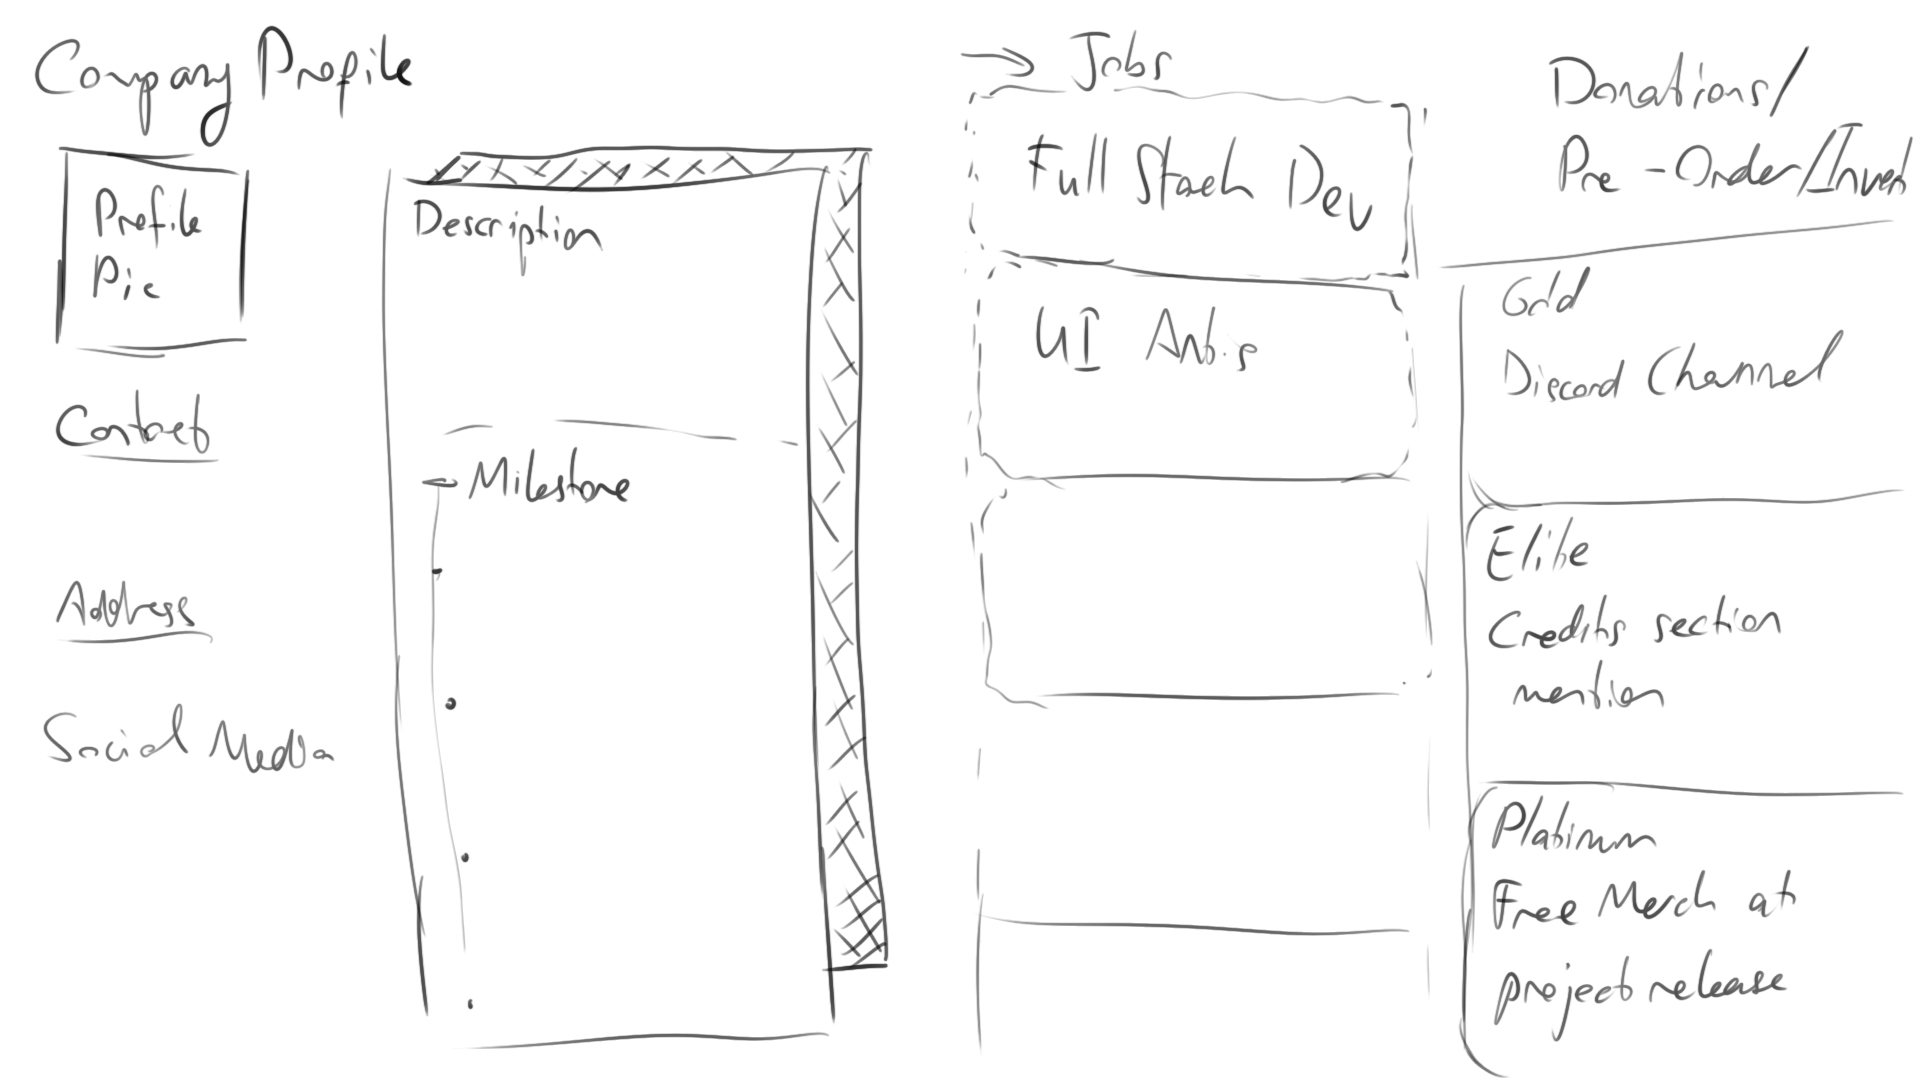 Company Profile
Profile
Pic
Contact
Address
Social Media
Description
Milestone
Jobs
Full Stack Dev
UI
Donations/
Pre-Order/Invest
Gold
Discord Channel
Elite
Credits section
mention
Platinum
Free Merch at
project release